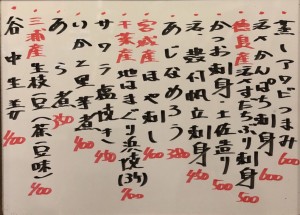 蒸しアワビつまみ 600
活さんぱち刺身 600
徳島産活すだちぶり刺身 500
かつお刺身・土佐造り 500
活帆立刺身 450
あじなめろう 380
宮城産ほや刺し 400
千葉産地はまぐり浜焼(3ケ) 700
サワラ塩焼き 450
いかと里芋煮 400
あら煮 350
三浦産生枝豆(茶豆味) 400
谷中生姜 400